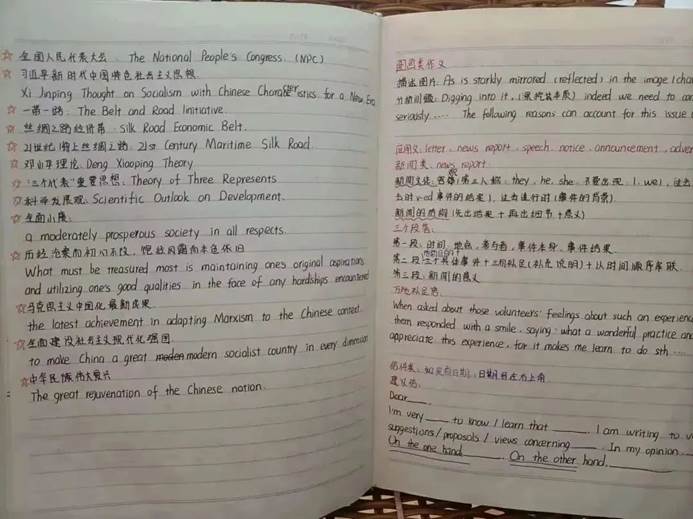 全国人民代表大会. The National People's Congress. (NPC)
习近平新时代中国特色社会主义思想.
Xi Jinping Thought on Socialism with Chinese Characteristics for a New Era
一带一路: The Belt and Road Initiative.
丝绸之路经济带. Silk Road Economic Belt.
21世纪海上丝绸之路. 21st Century Maritime Silk Road.
邓小平理论: Deng Xiaoping Theory
"三个代表"重要思想: Theory of Three Represents
科学发展观: Scientific Outlook on Development.
全面小康:
a moderately prosperous society in all respects.
历经沧桑而初心不改, 饱经风霜而本色依旧
What must be treasured most is maintaining one's original aspirations
and utilizing one's good qualities in the face of any hardships encountered
马克思主义中国化最新成果
the latest achievement in adapting Marxism to the Chinese context.
全面建设社会主义现代化强国
to make China a great modern socialist country in every dimension
中华民族伟大复兴
The great rejuvenation of the Chinese nation.
图画类作文
描述图片: As is starkly mirrored (reflected) in the image (char
分析问题: Digging into it, indeed we need to con
seriously..... The following reasons can account for this issue
应用文: letter, news report, speech, notice, announcement, adver
新闻类: news report.
新闻主体: 客观 (第三人称: they, he, she. 不要出现: I, we), 过去
式 v-ed (事件的结果), 过去进行时 (事件的背景)
新闻的结构 (先出结果 + 再出细节 + 意义)
三个段落:
第一段: 时间, 地点, 参与者, 事件本身, 事件结果.
第二段: 三个具体事件 + 三个补足 (补充说明) + 以时间顺序串联
第三段: 新闻的意义
万能补足句:
When asked about those volunteers' feelings about such an experience
them responded with a smile, saying: what a wonderful practice and
appreciate this experience, for it makes me learn to do sth.....
日期在右上角.
建议信:
Dear____,
I'm very ____ to know / learn that ____. I am writing to
suggestions / proposals / views concerning ____. In my opinion
On the one hand ____. On the other hand, ____